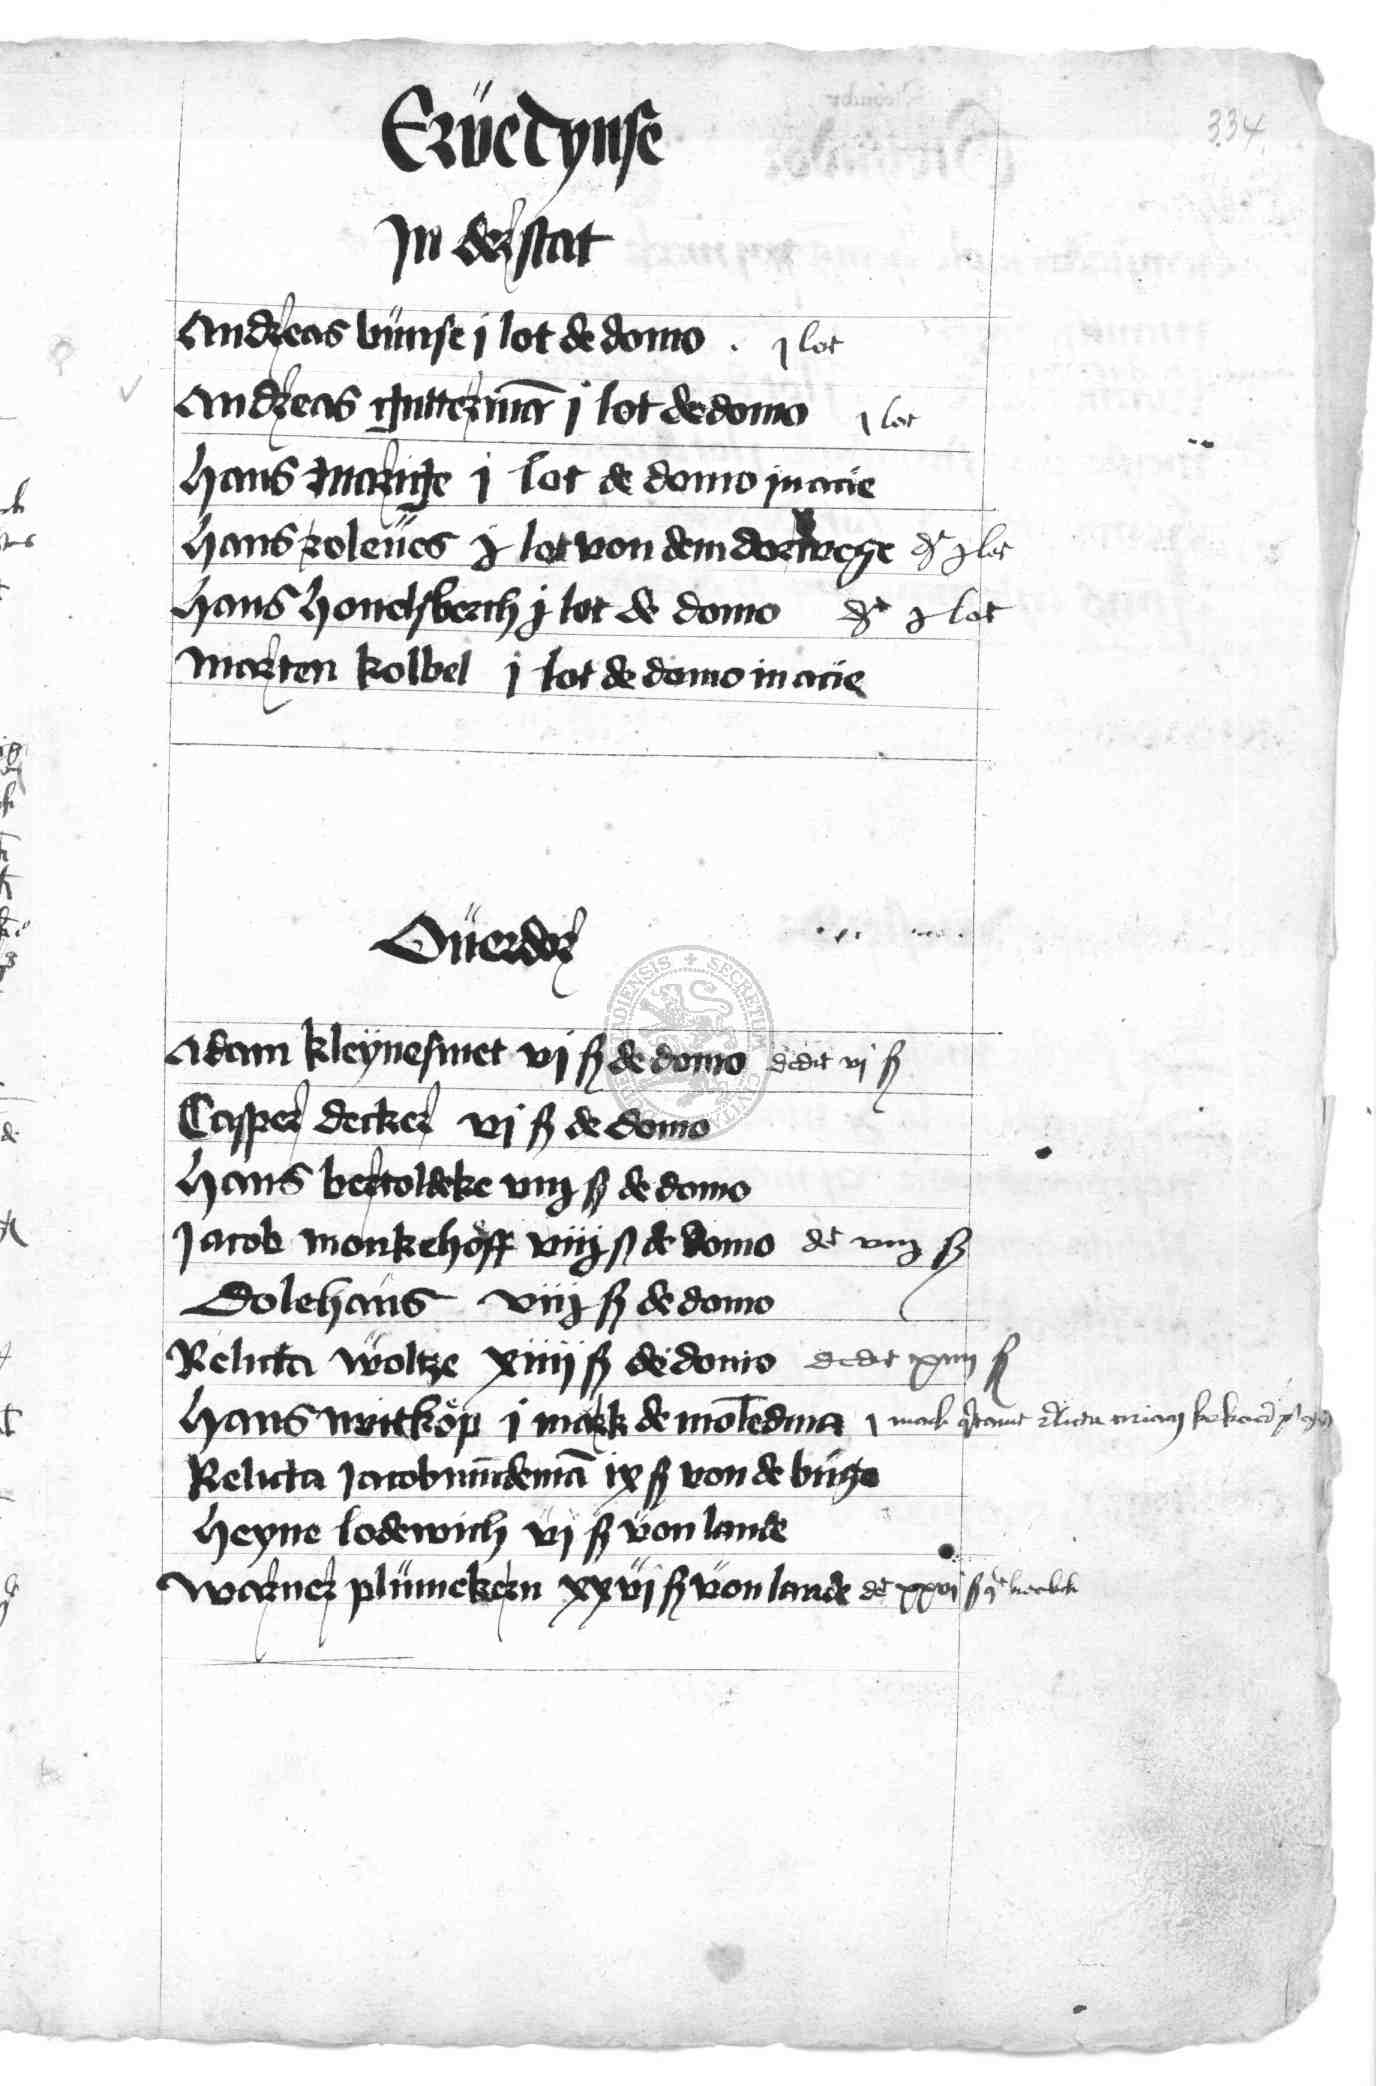 334
Erüetynse
In der stat
Andreas bünse j lot de domo . j lot
Andreas gutterman̄ j lot de domo j lot
Hans j lot de domo in acie
Hans roleues j lot von dem dorwege dt j lot
Hans honelsberch j lot de domo dt j lot
Marten kolbel j lot de domo in acie
Öüerdor
Adam kleÿnesmet vj ß de domo dedit vj ß
Casper decker vj ß de domo
Hans bertoldeke viij ß de domo
Jacob monkehoff viiij ß de domo dt viiij ß
Dolehans viiij ß de domo
Relicta woltze xiiij ß de domo dedit xiiij ß
Hans witkop j mark de molēdina j mark relicta
Relicta Jacob ix ß von de büge
Heyne lodewich vj ß von lande
Warner plümekern xxvj ß von lande dt xxvj ß